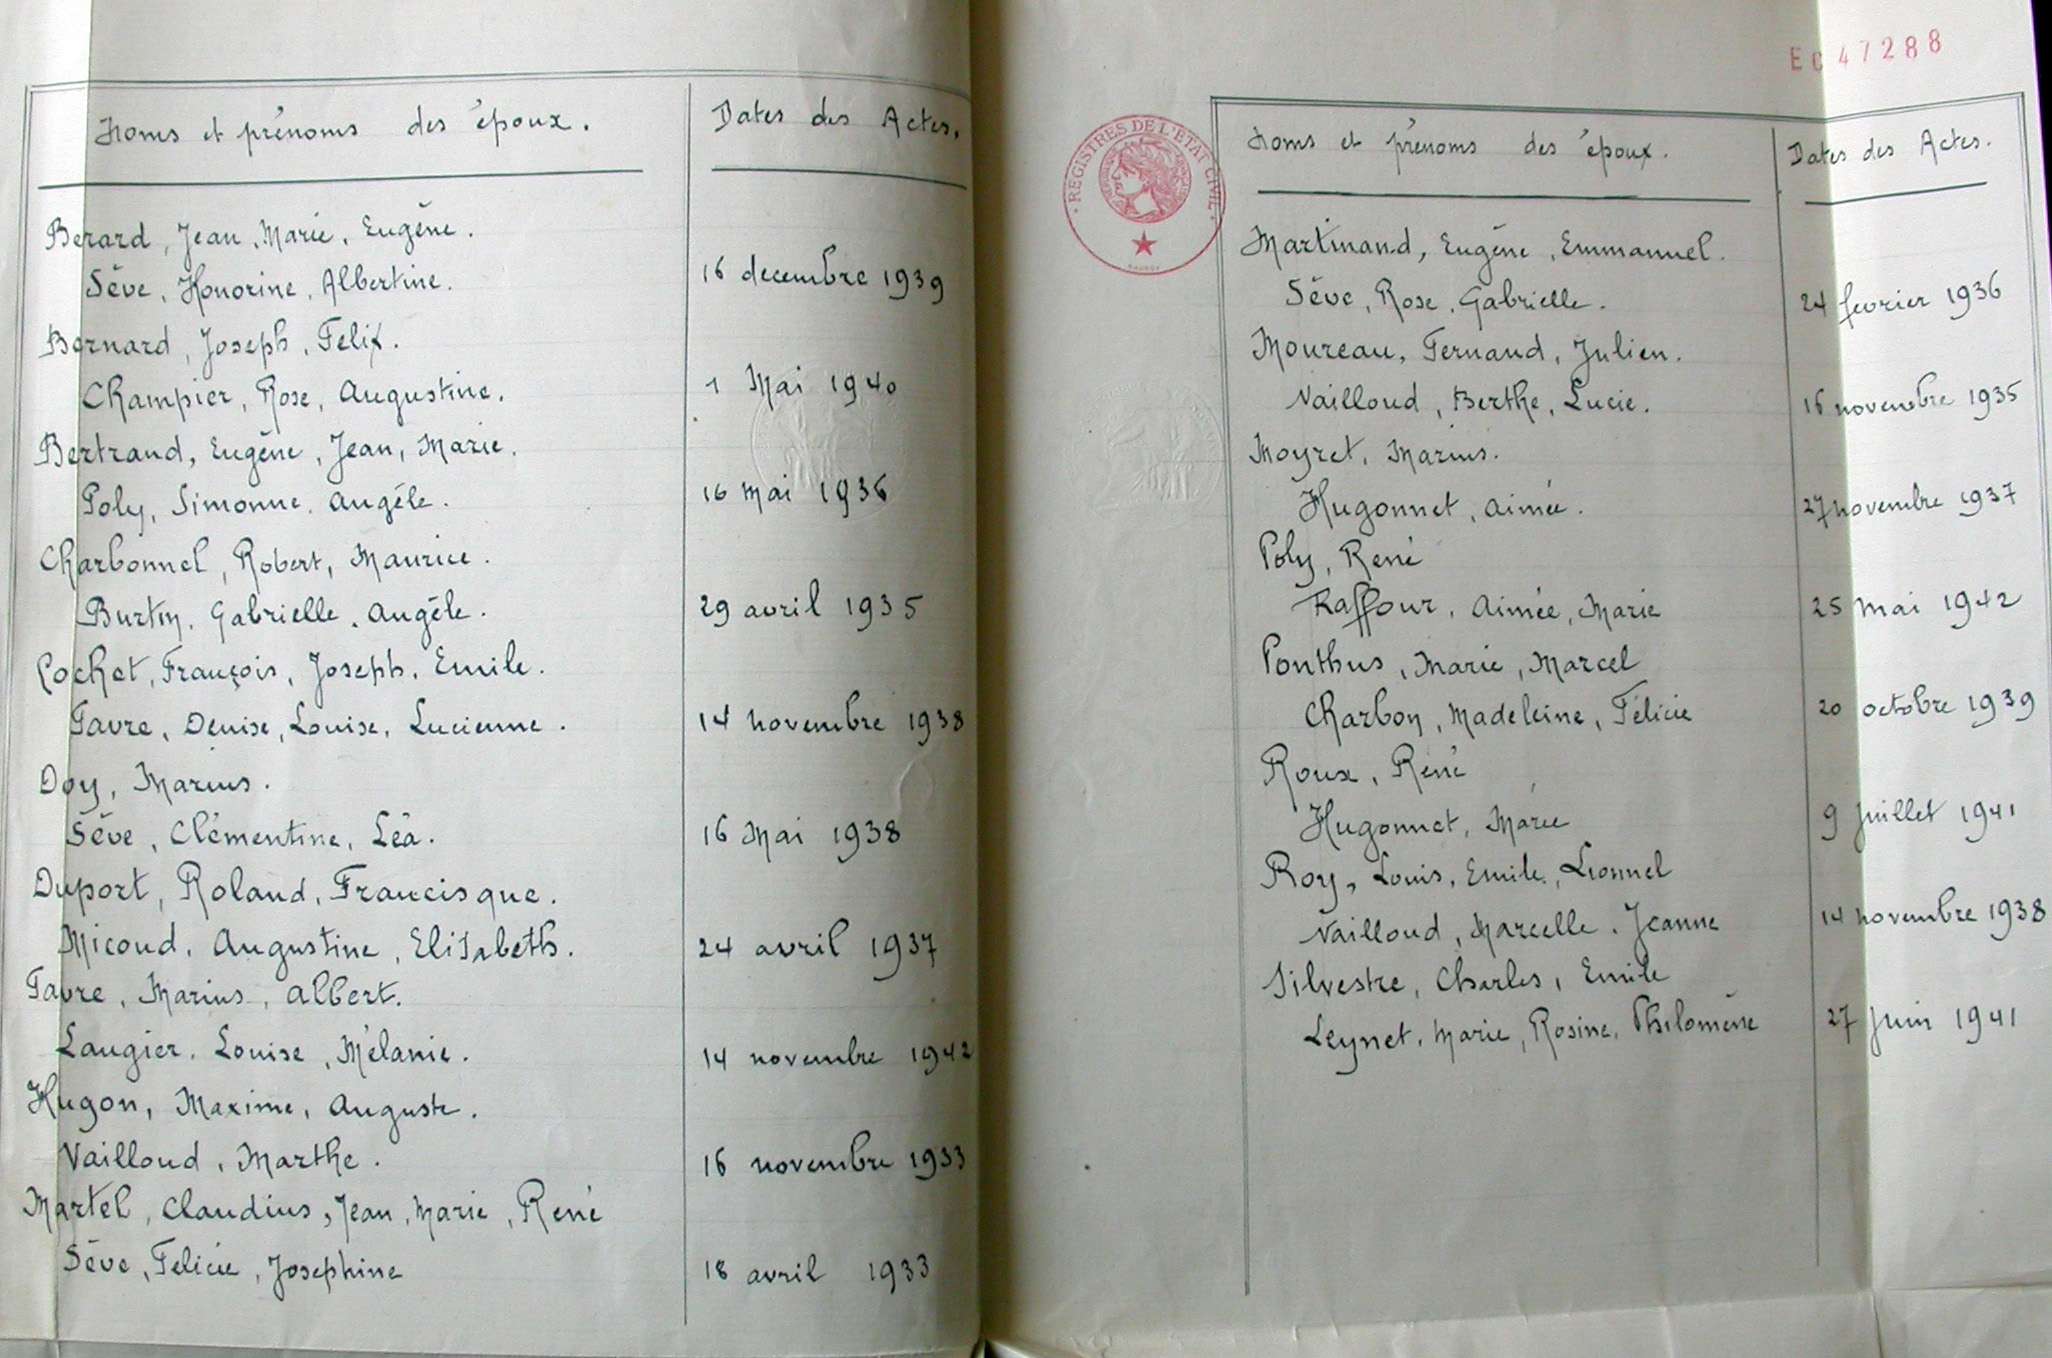 Noms et prénoms des époux. Dates des Actes.
Berard, Jean, Marie, Eugène.
Sève, Honorine, Albertine. 16 decembre 1939
Bernard, Joseph, Felix.
Champier, Rose, Augustine. 1 Mai 1940
Bertrand, Eugène, Jean, Marie.
Poly, Simonne, Angèle. 16 Mai 1936
Charbonnel, Robert, Maurice.
Burtin, Gabrielle, Angèle. 29 avril 1935
Cochet, François, Joseph, Emile.
Favre, Denise, Louise, Lucienne. 14 novembre 1938
Doy, Marius.
Sève, Clémentine, Léa. 16 Mai 1938
Duport, Roland, Francisque.
Micoud, Augustine, Elisabeth. 24 avril 1937
Favre, Marius, Albert.
Laugier, Louise, Mélanie. 14 novembre 1942
Hugon, Maxime, Auguste.
Vailloud, Marthe. 16 novembre 1933
Martel, Claudius, Jean, Marie, René
Sève, Felicie, Josephine 18 avril 1933
EC 47288
REGISTRES DE L'ÉTAT CIVIL
Noms et prénoms des époux. Dates des Actes.
Martinand, Eugène, Emmanuel.
Sève, Rose, Gabrielle. 24 fevrier 1936
Moureau, Fernand, Julien.
Vailloud, Berthe, Lucie. 16 novembre 1935
Moyret, Marius.
Hugonnet, Aimée. 27 novembre 1937
Poly, René
Raffour, Aimée, Marie 25 Mai 1942
Ponthus, Marie, Marcel
Charbon, Madeleine, Félicie 20 octobre 1939
Roux, René
Hugonnet, Marie 9 Juillet 1941
Roy, Louis, Emile, Lionnel
Vailloud, Marcelle, Jeanne 14 novembre 1938
Silvestre, Charles, Emile
Leynet, Marie, Rosine, Philomène 27 Juin 1941